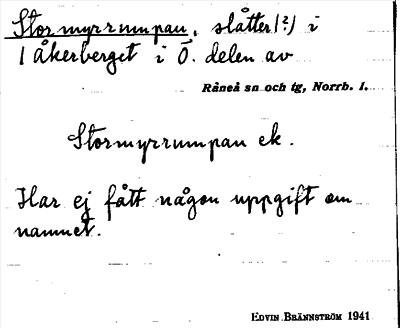 Stormyrrumpan, slåtter(?) i
Åkerberget i Ö. delen av
Råneå sn och tg, Norrb. l.
Stormyrrumpan ek.
Har ej fått någon uppgift om
namnet.
EDVIN BRÄNNSTRÖM 1941